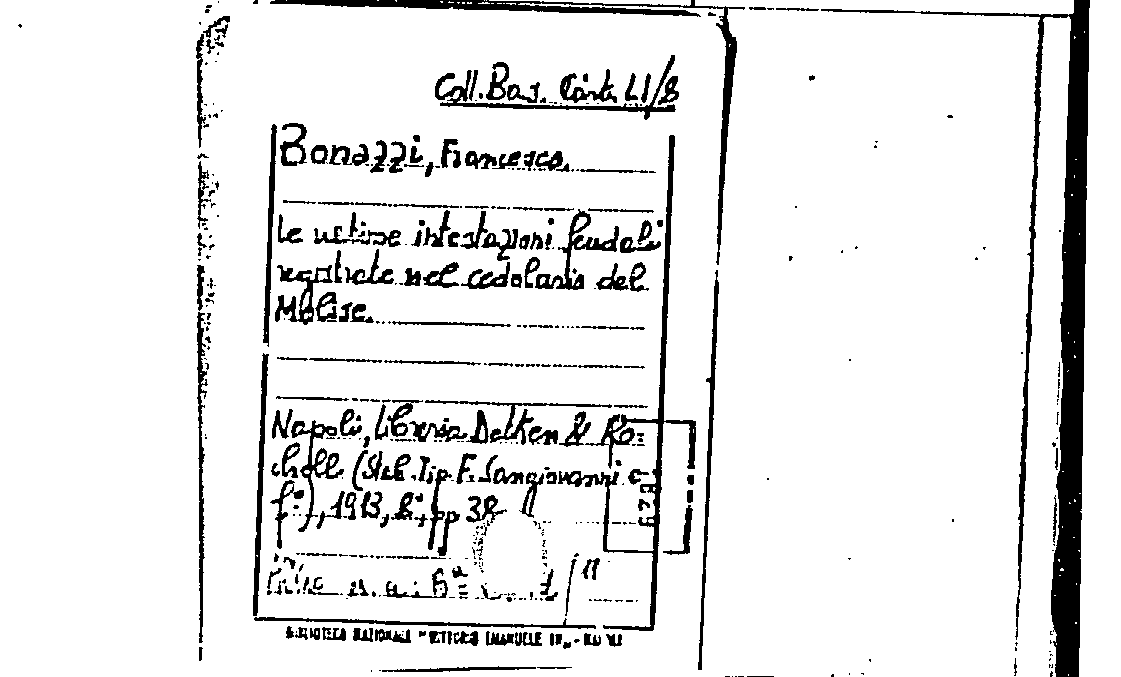 Coll. Bas. Cart. LI/8
Bonazzi, Francesco.
Le ultime intestazioni feudali
registrate nel cedolario del
Molise.
Napoli, Libreria Detken & Ro=
choll (Stab. Tip. F. Sangiovanni e
f.°), 1913, 8°, pp 38
678
BIBLIOTECA NAZIONALE "VITTORIO EMANUELE III" - NAPOLI